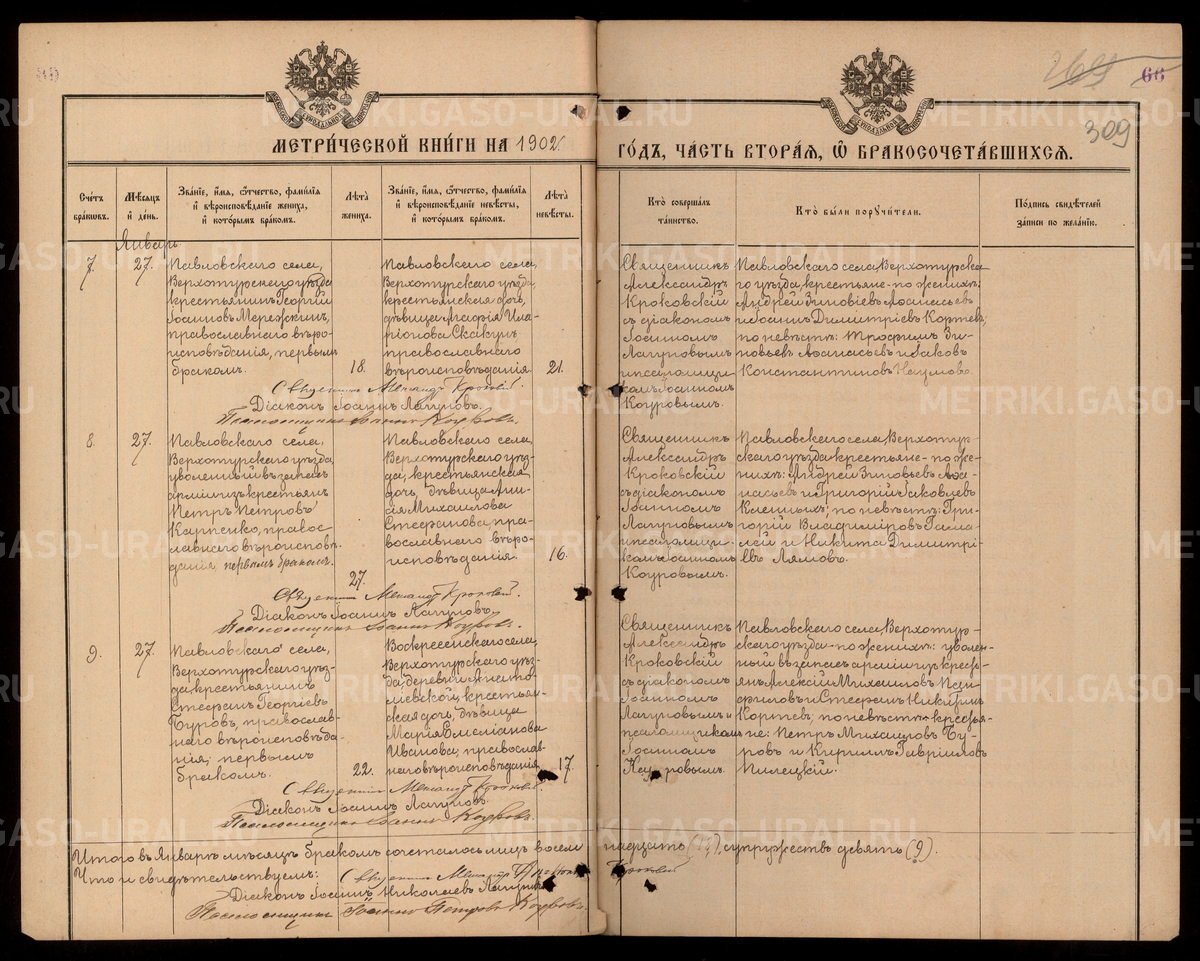 66
309
МЕТРИ́ЧЕСКОЙ КНИ́ГИ НА 1902 ГО́ДЪ, ЧА́СТЬ ВТОРА́Я, Ѽ БРАКОСОЧЕТА́ВШИХСЯ.
Сче́тъ бра́ковъ.
Мѣ́сяцъ и҆ де́нь.
Зва́нїе, и҆́мя, ѻ҆́тчество, фами́лїя и҆ вѣроисповѣ́данїе жениха̀, и҆ кото́рымъ бра́комъ.
Лѣ́та жениха̀.
Зва́нїе, и҆́мя, ѻ҆́тчество, фами́лїя и҆ вѣроисповѣ́данїе невѣ́сты, и҆ кото́рымъ бра́комъ.
Лѣ́та невѣ́сты.
Кто̀ соверша́лъ та́инство.
Кто̀ бы́ли пору́чители.
По́дпись свидѣ́телей за́писи по жела́нїю.
Январь
7.
27.
Павловскаго села,
Верхотурскаго уѣзда
крестьянинъ Георгій
Іоанновъ Мережкинъ,
православнаго вѣро-
исповѣданія, первымъ
бракомъ.
18.
Павловскаго села,
Верхотурскаго уѣзда,
крестьянская дочь,
дѣвица Марія Ила-
ріонова Скакун
православнаго
вѣроисповѣданія.
21.
Священникъ
Александръ
Кроковскій
съ діакономъ
Іоанномъ
Лапуновымъ
и псаломщи-
комъ Іоанномъ
Коуровымъ.
Павловскаго села, Верхотурска-
го уѣзда, крестьяне - по женихѣ:
Андрей Зиновіевъ Аѳанасьевъ
и Іоаннъ Димитріевъ Кортевъ;
по невѣстѣ: Трофимъ Зи-
новьевъ Аѳанасьевъ и Іаковъ
Константиновъ Наумовъ.
Священникъ Александръ Кроковскій.
Діаконъ Іоаннъ Лапуновъ.
Псаломщикъ Іоаннъ Коуровъ.
8.
27.
Павловскаго села,
Верхотурскаго уѣзда,
уволенный въ запасъ
арміи изъ крестьянъ
Петръ Петровъ
Карпенко, правос-
лавнаго вѣроисповѣ-
данія, первымъ бракомъ.
27.
Павловскаго села,
Верхотурскаго уѣз-
да, крестьянская
дочь, дѣвица Ани-
сія Михаилова
Стефанова, пра-
вославнаго вѣро-
исповѣданія.
16.
Священникъ
Александръ
Кроковскій
съ діакономъ
Іоанномъ
Лапуновымъ
и псаломщи-
комъ Іоанномъ
Коуровымъ.
Павловскаго села, Верхотур-
скаго уѣзда крестьяне - по же-
нихѣ: Андрей Зиновьевъ Аѳа-
насьевъ и Григорій Іаковлевъ
Клепныхъ; по невѣстѣ: Гри-
горій Владиміровъ Гама-
лей и Никита Димитрі-
евъ Лямовъ.
Священникъ Александръ Кроковскій.
Діаконъ Іоаннъ Лапуновъ.
Псаломщикъ Іоаннъ Коуровъ.
9.
27.
Павловскаго села,
Верхотурскаго уѣз-
да, крестьянинъ
Стефанъ Георгіевъ
Буровъ, православ-
наго вѣроисповѣда-
нія, первымъ
бракомъ.
22.
Воскресенскаго села,
Верхотурскаго уѣз-
да деревни
крестьян-
ская дочь, дѣвица
Марія Емеліанова
Иванова; православ-
наго вѣроисповѣданія
17.
Священникъ
Александръ
Кроковскій
съ діакономъ
Іоанномъ
Лапуновымъ и
псаломщикомъ
Іоанномъ
Коуровымъ.
Павловскаго села, Верхотур-
скаго уѣзда - по женихѣ: уволен-
ный въ запасъ арміи изъ кресть-
янъ Алексій Михаиловъ
и Стефанъ Никитинъ
Кортевъ; по невѣстѣ крестья-
не: Петръ Михаиловъ Бу-
ровъ и Кириллъ Гавріиловъ
Пилецкій.
Священникъ Александръ Кроковскій.
Діаконъ Іоаннъ Лапуновъ.
Псаломщикъ Іоаннъ Коуровъ.
Итого въ Январѣ мѣсяцѣ бракомъ сочеталось лицъ восемнадцать (18), супружествъ девять (9).
Что и свидѣтельствуемъ: Священникъ Александръ Кроковскій
Діаконъ Іоаннъ Николаевъ Лапуновъ
Псаломщикъ Іоаннъ Петровъ Коуровъ.
METRIKI.GASO-URAL.RU